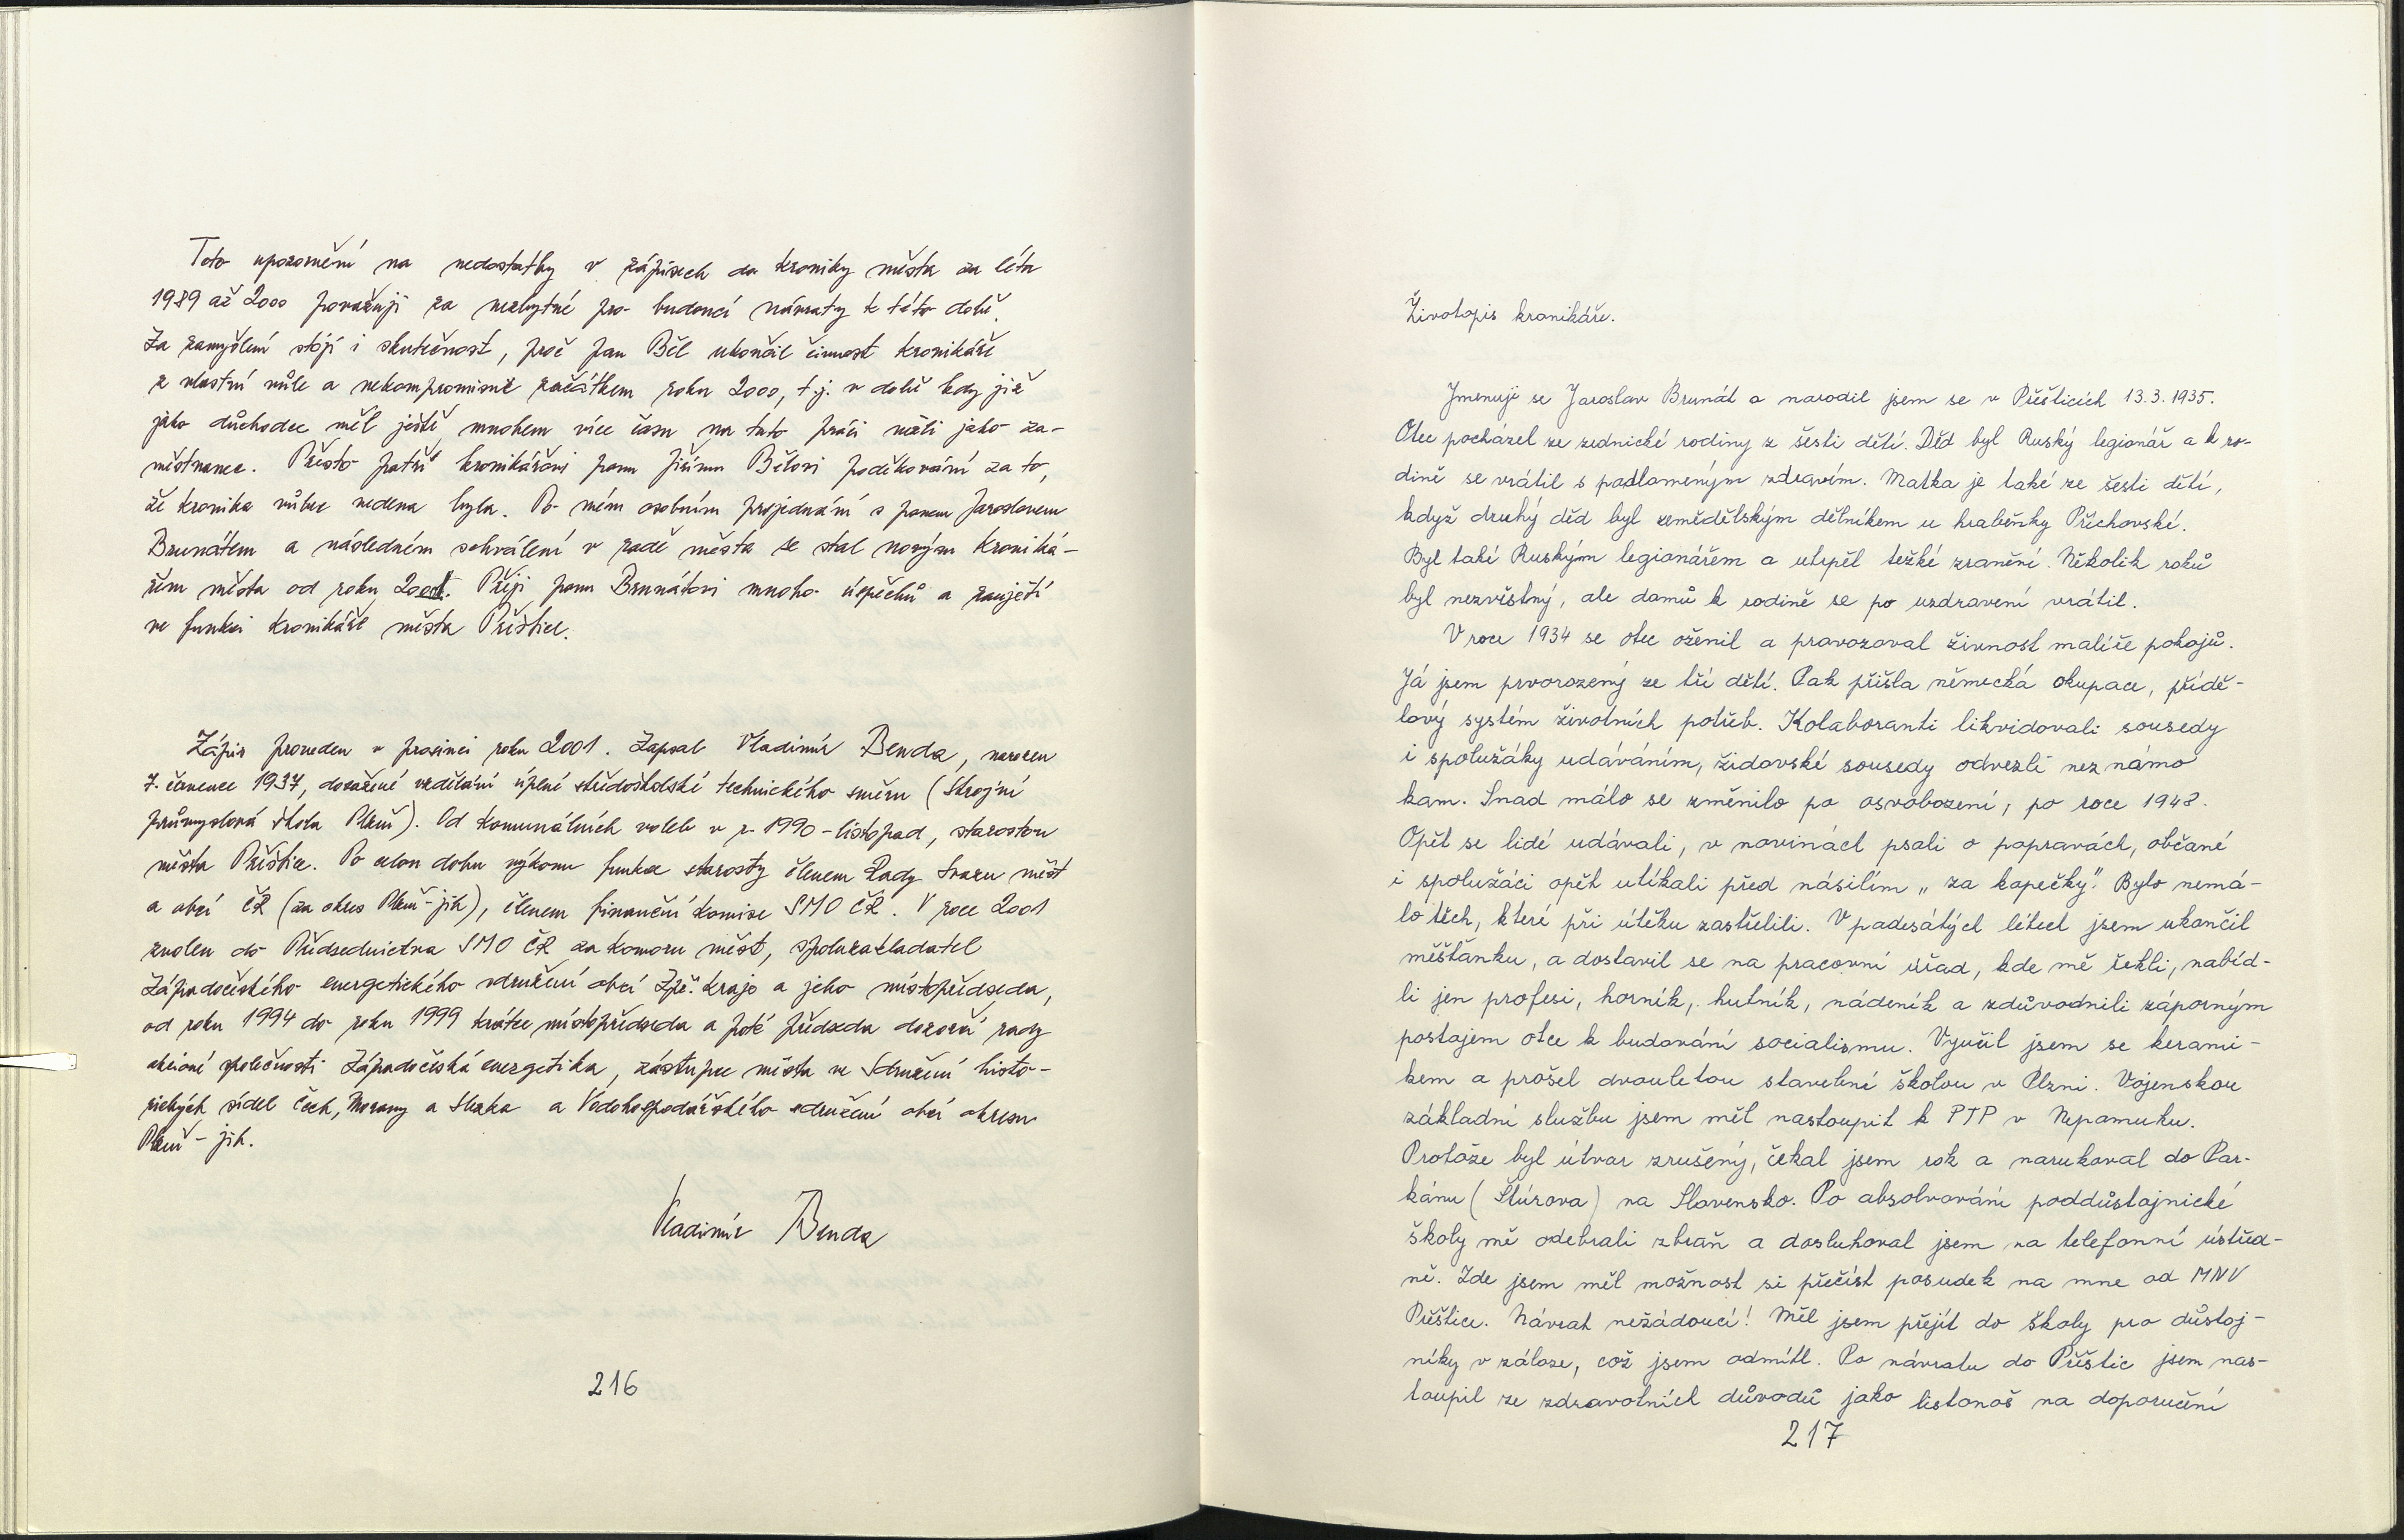 Toto upozornění na nedostatky v zápisech do kroniky města za léta
1989 až 2000 považuji za nezbytné pro budoucí návraty k této době.
Za zamyšlení stojí i skutečnost, proč pan Běl ukončil činnost kronikáře
z vlastní vůle a nekompromisně začátkem roku 2000, t.j. v době kdy již
jako důchodce měl ještě mnohem více času na tuto práci nežli jako za-
městnanec. Přesto patří kronikářovi panu Jiřímu Bělovi poděkování za to,
že kronika vůbec vedena byla. Po mém osobním projednání s panem Jaroslavem
Brunátem a následném schválení v radě města se stal novým kroniká-
řem města od roku 2001. Přeji panu Brunátovi mnoho úspěchů a zaujetí
ve funkci kronikáře města Přeštice.
Zápis proveden v prosinci roku 2001. Zapsal Vladimír Benda, narozen
7. července 1937, dosažené vzdělání úplné středoškolské technického směru (Strojní
průmyslová škola Plzeň). Od komunálních voleb v r. 1990 - listopad, starostou
města Přeštice. Po celou dobu výkonu funkce starosty členem Rady Svazu měst
a obcí ČR (za okres Plzeň-jih), členem finanční komise SMO ČR. V roce 2001
zvolen do Předsednictva SMO ČR za komoru měst, spoluzakladatel
Západočeského energetického sdružení obcí Zpč. kraje a jeho místopředseda,
od roku 1994 do roku 1999 krátce místopředseda a poté předseda dozorčí rady
akciové společnosti Západočeská energetika, zástupce města ve Sdružení histo-
rických sídel Čech, Moravy a Slezka a Vodohospodářského sdružení obcí okresu
Plzeň - jih.
Vladimír Benda
216
Životopis kronikáře.
Jmenuji se Jaroslav Brunát a narodil jsem se v Přešticích 13.3.1935.
Otec pocházel ze zednické rodiny z šesti dětí. Děd byl Ruský legionář a k ro-
dině se vrátil s podlomeným zdravím. Matka je také ze šesti dětí,
když druhý děd byl zemědělským dělníkem u hraběnky Příchovské.
Byl také Ruským legionářem a utrpěl težké zranění. Několik roků
byl nezvěstný, ale domů k rodině se po uzdravení vrátil.
V roce 1934 se otec oženil a provozoval živnost malíře pokojů.
Já jsem prvorozený ze tří dětí. Pak přišla německá okupace, přídě-
lový systém životních potřeb. Kolaboranti likvidovali sousedy
i spolužáky udáváním, židovské sousedy odvezli neznámo
kam. Snad málo se změnilo po osvobození, po roce 1948.
Opět se lidé udávali, v novinách psali o popravách, občané
i spolužáci opět utíkali před násilím „za kopečky". Bylo nemá-
lo těch, které při útěku zastřelili. V padesátých létech jsem ukončil
měšťanku, a dostavil se na pracovní úřad, kde mě řekli, nabíd-
li jen profesi, horník, hutník, nádeník a zdůvodnili záporným
postojem otce k budování socialismu. Vyučil jsem se kerami-
kem a prošel dvouletou stavební školou v Plzni. Vojenskou
základní službu jsem měl nastoupit k PTP v Nepomuku.
Protože byl útvar zrušený, čekal jsem rok a narukoval do Par-
kánu (Štúrova) na Slovensko. Po absolvování poddůstojnické
školy mě odebrali zbraň a dosluhoval jsem na telefonní ústřed-
ně. Zde jsem měl možnost si přečíst posudek na mne od MNV
Přeštice. Návrat nežádoucí! Měl jsem přejít do školy pro důstoj-
níky v záloze, což jsem odmítl. Po návratu do Přeštic jsem nas-
toupil ze zdravotních důvodů jako listonoš na doporučení
217